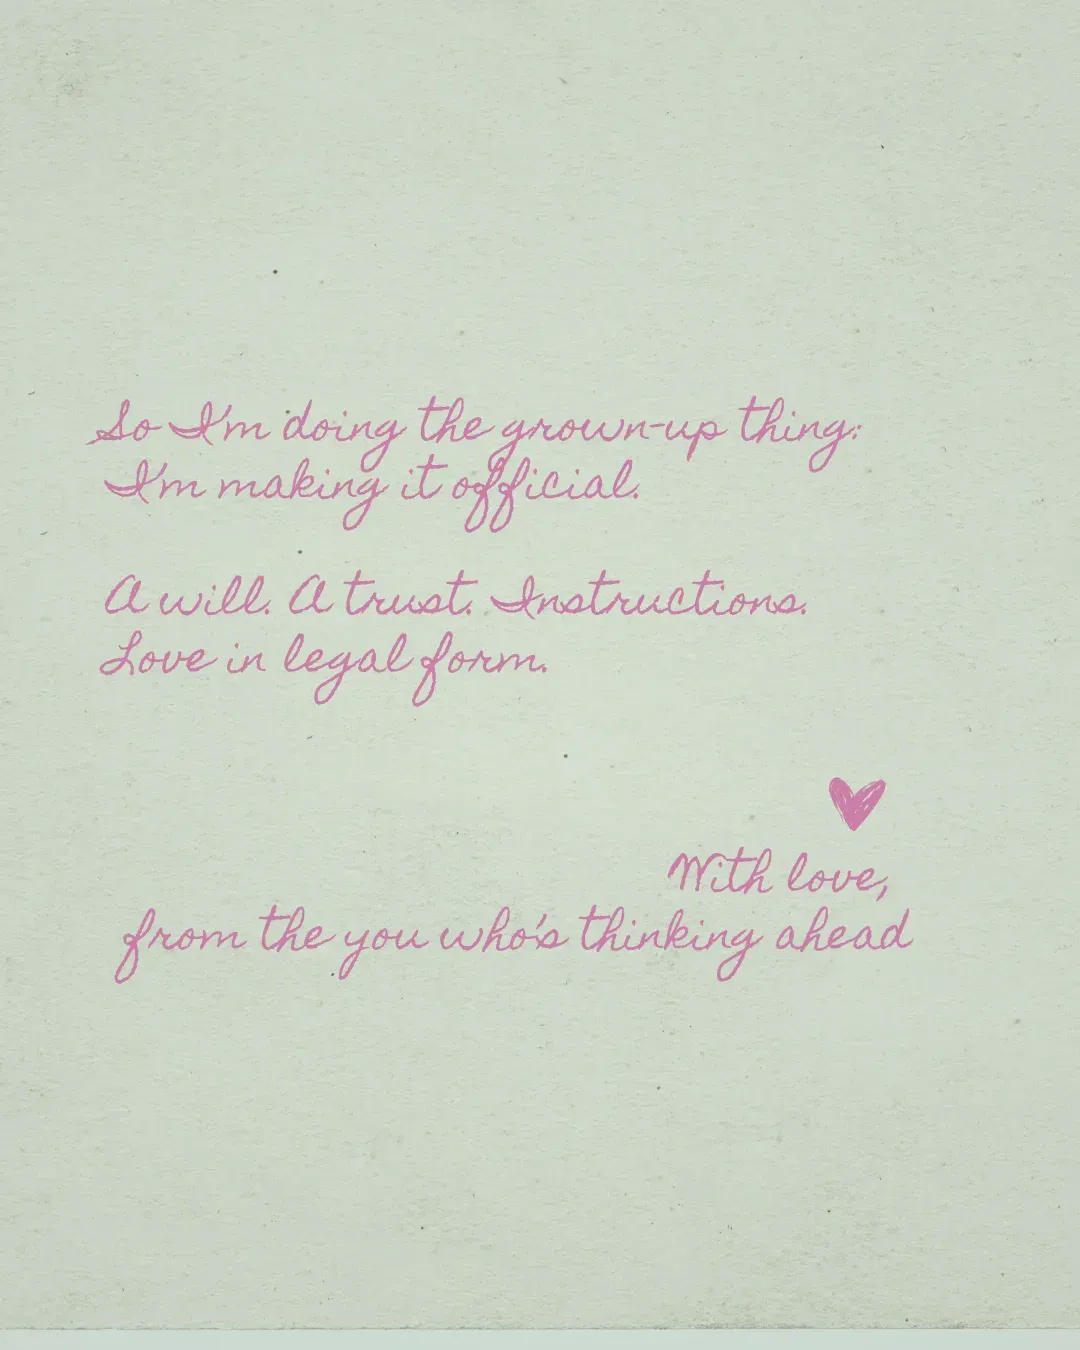 So I'm doing the grown-up thing:
I'm making it official.
A will. A trust. Instructions.
Love in legal form.
With love,
from the you who's thinking ahead